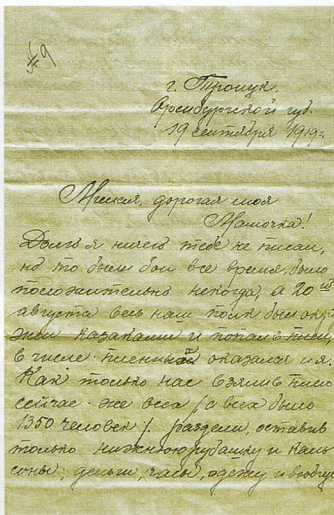 №9
г. Троицк.
Оренбургской губ.
19 сентября 1919г.
Милая, дорогая моя
Мамочка!
Долго я ничего тебе не писал,
но то были бои все время, было
положительно некогда, а 20го
августа весь наш полк был окру-
жен казаками и попал в плен,
в числе пленных оказался и я.
Как только нас взяли в плен
сейчас-же всех (а всех было
1350 человек) раздели, оставив
только нижнюю рубашку и каль
соны; деньги, часы, одежу и вообще